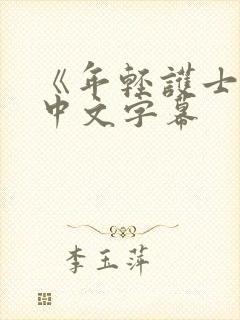 《年輕護士
中文字幕
李玉萍